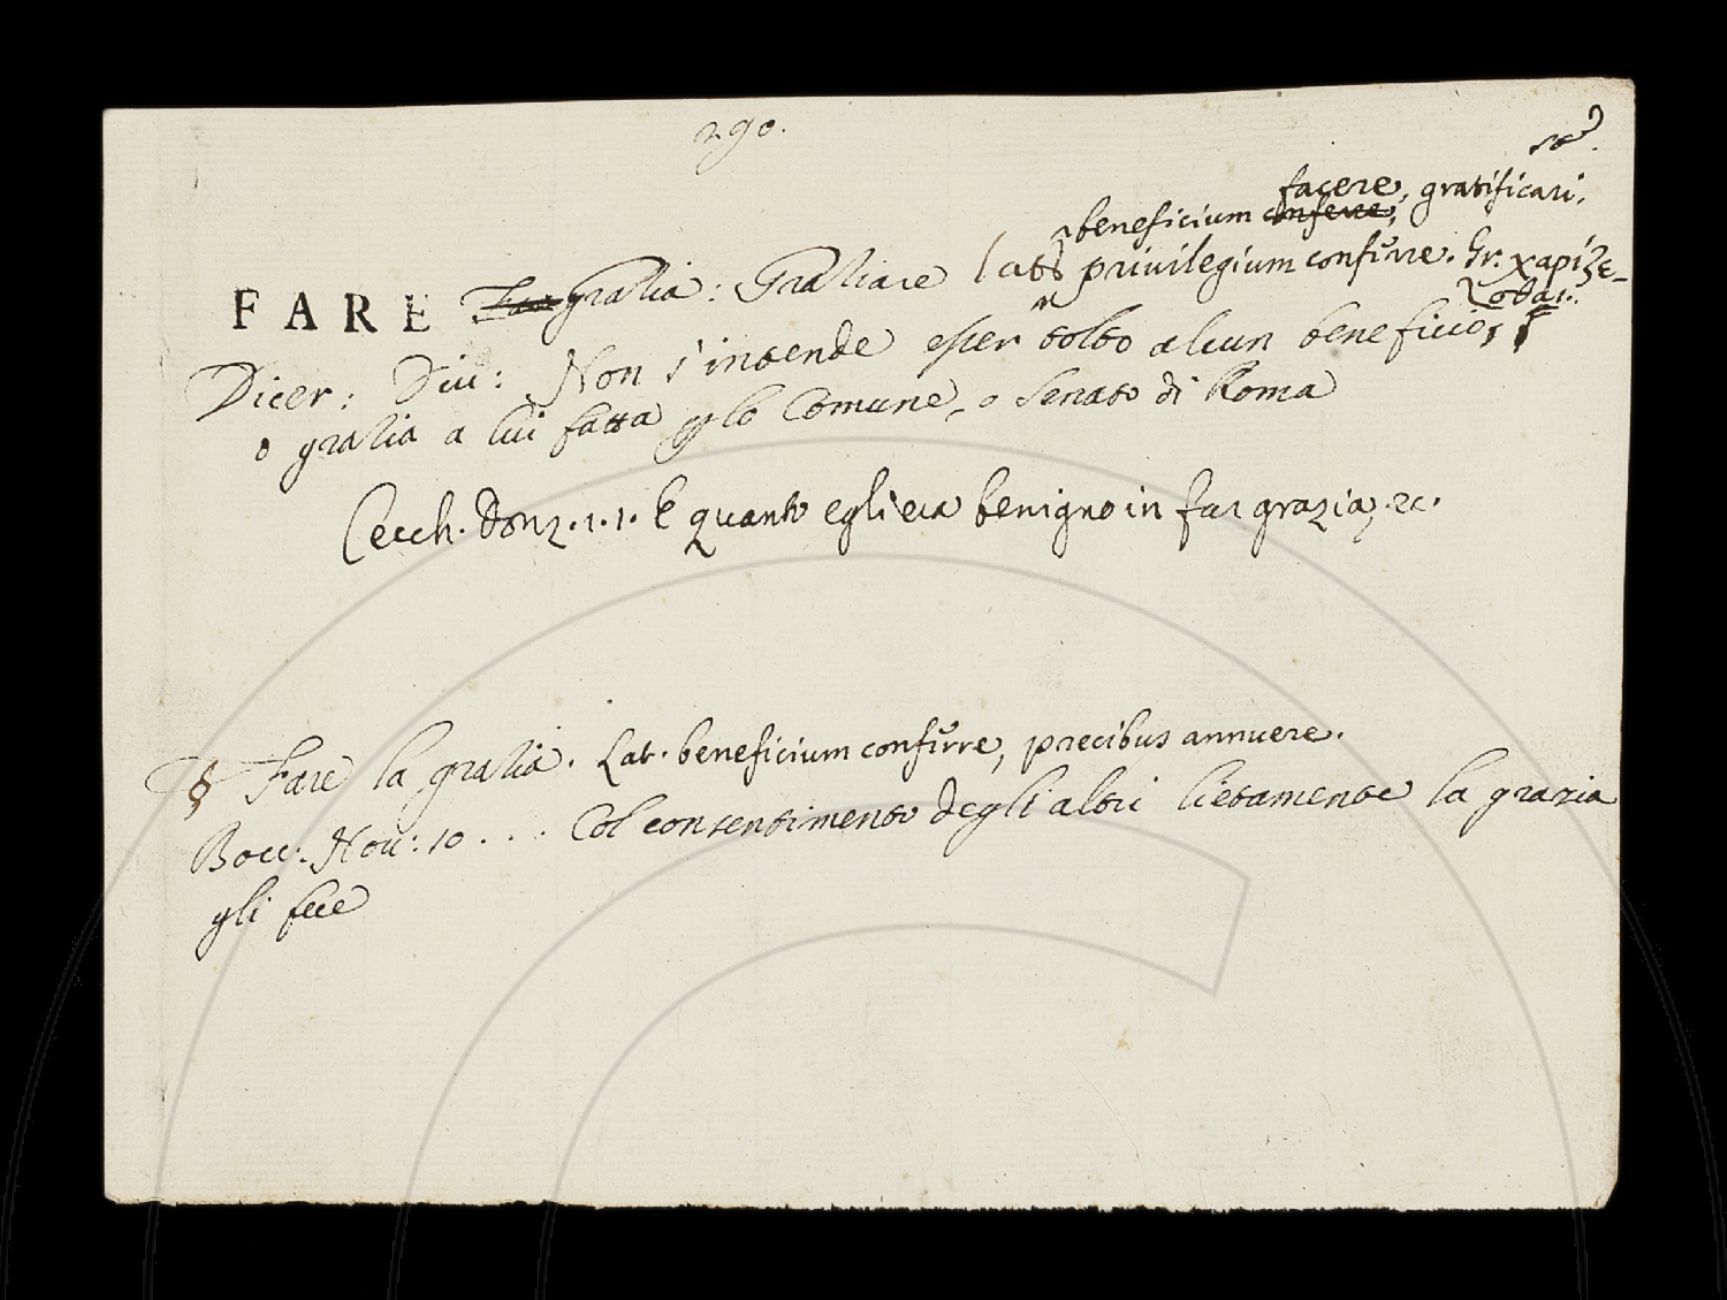 290.
facere, gratificari.
beneficium conferre,
FARE Fare gratia: Gratiare lat. privilegium conferre. Gr. χαρίζε-
σθαι.
Dicer: Diu: Non s'intende esser tolto alcun beneficio,
o gratia a lui fatta p lo Comune, o Senato di Roma
Cecch. Donz. 1. 1. E quanto egli era benigno in far grazia, ec.
§ Fare la gratia. Lat. beneficium conferre, precibus annuere.
Bocc. Nov: 10 . . . Col consentimento degli altri lietamente la grazia
gli fece